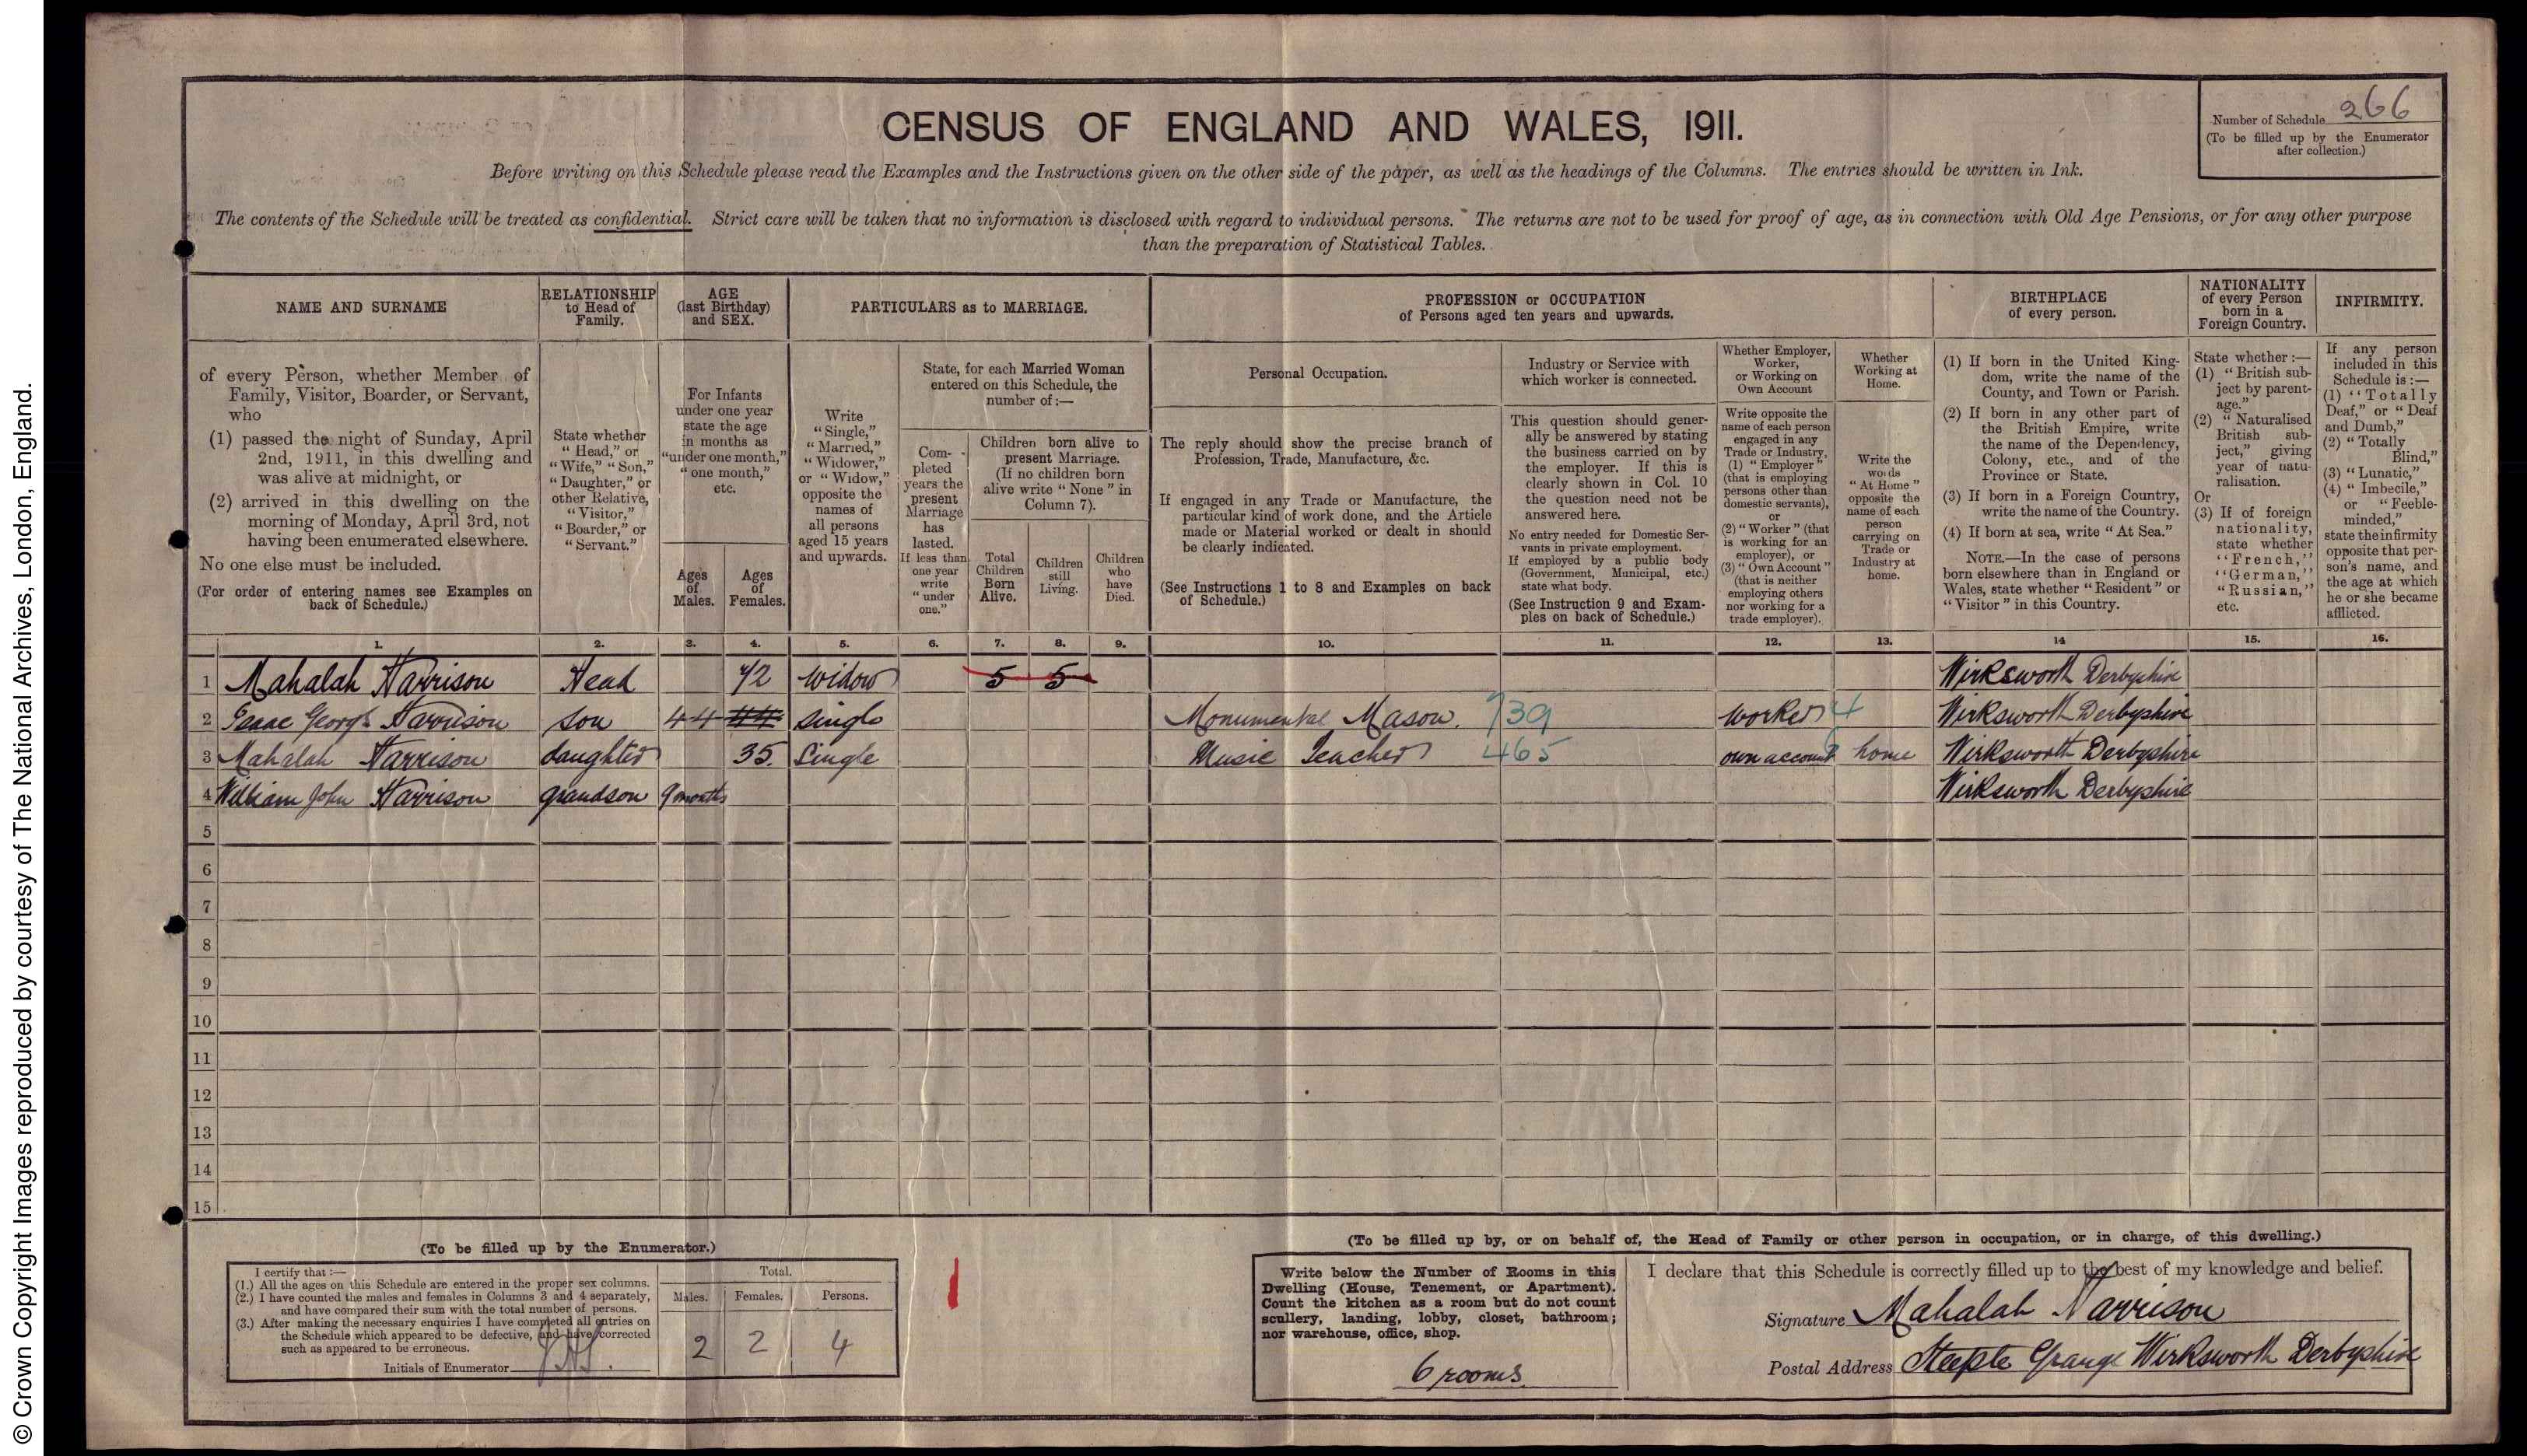 © Crown Copyright Images reproduced by courtesy of The National Archives, London, England.
CENSUS OF ENGLAND AND WALES, 1911.
Number of Schedule 266
(To be filled up by the Enumerator
after collection.)
Before writing on this Schedule please read the Examples and the Instructions given on the other side of the paper, as well as the headings of the Columns. The entries should be written in Ink.
The contents of the Schedule will be treated as confidential. Strict care will be taken that no information is disclosed with regard to individual persons. The returns are not to be used for proof of age, as in connection with Old Age Pensions, or for any other purpose
than the preparation of Statistical Tables.
NAME AND SURNAME
of every Person, whether Member of
Family, Visitor, Boarder, or Servant,
who
(1) passed the night of Sunday, April
2nd, 1911, in this dwelling and
was alive at midnight, or
(2) arrived in this dwelling on the
morning of Monday, April 3rd, not
having been enumerated elsewhere.
No one else must be included.
(For order of entering names see Examples on
back of Schedule.)
RELATIONSHIP
to Head of
Family.
State whether
"Head," or
"Wife," "Son,"
"Daughter," or
other Relative,
"Visitor,"
"Boarder," or
"Servant."
AGE
(last Birthday)
and SEX.
For Infants
under one year
state the age
in months as
"under one month,"
"one month,"
etc.
Ages
of
Males.
Ages
of
Females.
PARTICULARS as to MARRIAGE.
Write
"Single,"
"Married,"
"Widower,"
or "Widow,"
opposite the
names of
all persons
aged 15 years
and upwards.
State, for each Married Woman
entered on this Schedule, the
number of :—
Com-
pleted
years the
present
Marriage
has
lasted.
If less than
one year
write
"under
one."
Children born alive to
present Marriage.
(If no children born
alive write "None" in
Column 7).
Total
Children
Born
Alive.
Children
still
Living.
Children
who
have
Died.
PROFESSION or OCCUPATION
of Persons aged ten years and upwards.
Personal Occupation.
The reply should show the precise branch of
Profession, Trade, Manufacture, &c.
If engaged in any Trade or Manufacture, the
particular kind of work done, and the Article
made or Material worked or dealt in should
be clearly indicated.
(See Instructions 1 to 8 and Examples on back
of Schedule.)
Industry or Service with
which worker is connected.
This question should gener-
ally be answered by stating
the business carried on by
the employer. If this is
clearly shown in Col. 10
the question need not be
answered here.
No entry needed for Domestic Ser-
vants in private employment.
If employed by a public body
(Government, Municipal, etc.)
state what body.
(See Instruction 9 and Exam-
ples on back of Schedule.)
Whether Employer,
Worker,
or Working on
Own Account
Write opposite the
name of each person
engaged in any
Trade or Industry,
(1) "Employer"
(that is employing
persons other than
domestic servants),
or
(2) "Worker" (that
is working for an
employer), or
(3) "Own Account"
(that is neither
employing others
nor working for a
trade employer).
Whether
Working at
Home.
Write the
words
"At Home"
opposite the
name of each
person
carrying on
Trade or
Industry at
home.
BIRTHPLACE
of every person.
(1) If born in the United King-
dom, write the name of the
County, and Town or Parish.
(2) If born in any other part of
the British Empire, write
the name of the Dependency,
Colony, etc., and of the
Province or State.
(3) If born in a Foreign Country,
write the name of the Country.
(4) If born at sea, write "At Sea."
NOTE.—In the case of persons
born elsewhere than in England or
Wales, state whether "Resident" or
"Visitor" in this Country.
NATIONALITY
of every Person
born in a
Foreign Country.
State whether :—
(1) "British sub-
ject by parent-
age."
(2) "Naturalised
British sub-
ject," giving
year of natu-
ralisation.
Or
(3) If of foreign
nationality,
state whether
"French,"
"German,"
"Russian,"
etc.
INFIRMITY.
If any person
included in this
Schedule is :—
(1) "Totally
Deaf," or "Deaf
and Dumb,"
(2) "Totally
Blind,"
(3) "Lunatic,"
(4) "Imbecile,"
or "Feeble-
minded,"
state the infirmity
opposite that per-
son's name, and
the age at which
he or she became
afflicted.
1. 2. 3. 4. 5. 6. 7. 8. 9. 10. 11. 12. 13. 14 15. 16.
1 Mahalah Harrison Head 72 Widow 5 5 Wirksworth Derbyshire
2 Isaac George Harrison son 44 44 single Monumental Mason. 739 worker 4 Wirksworth Derbyshire
3 Mahalah Harrison daughter 35. Single Music Teacher 465 own account home Wirksworth Derbyshire
4 William John Harrison grandson 9 months Wirksworth Derbyshire
5
6
7
8
9
10
11
12
13
14
15
(To be filled up by the Enumerator.)
I certify that :—
(1.) All the ages on this Schedule are entered in the proper sex columns.
(2.) I have counted the males and females in Columns 3 and 4 separately,
and have compared their sum with the total number of persons.
(3.) After making the necessary enquiries I have completed all entries on
the Schedule which appeared to be defective, and have corrected
such as appeared to be erroneous.
Initials of Enumerator
Total.
Males. Females. Persons.
2 2 4
(To be filled up by, or on behalf of, the Head of Family or other person in occupation, or in charge, of this dwelling.)
Write below the Number of Rooms in this
Dwelling (House, Tenement, or Apartment).
Count the kitchen as a room but do not count
scullery, landing, lobby, closet, bathroom;
nor warehouse, office, shop.
6 rooms
I declare that this Schedule is correctly filled up to the best of my knowledge and belief.
Signature Mahalah Harrison
Postal Address Steeple Grange Wirksworth Derbyshire